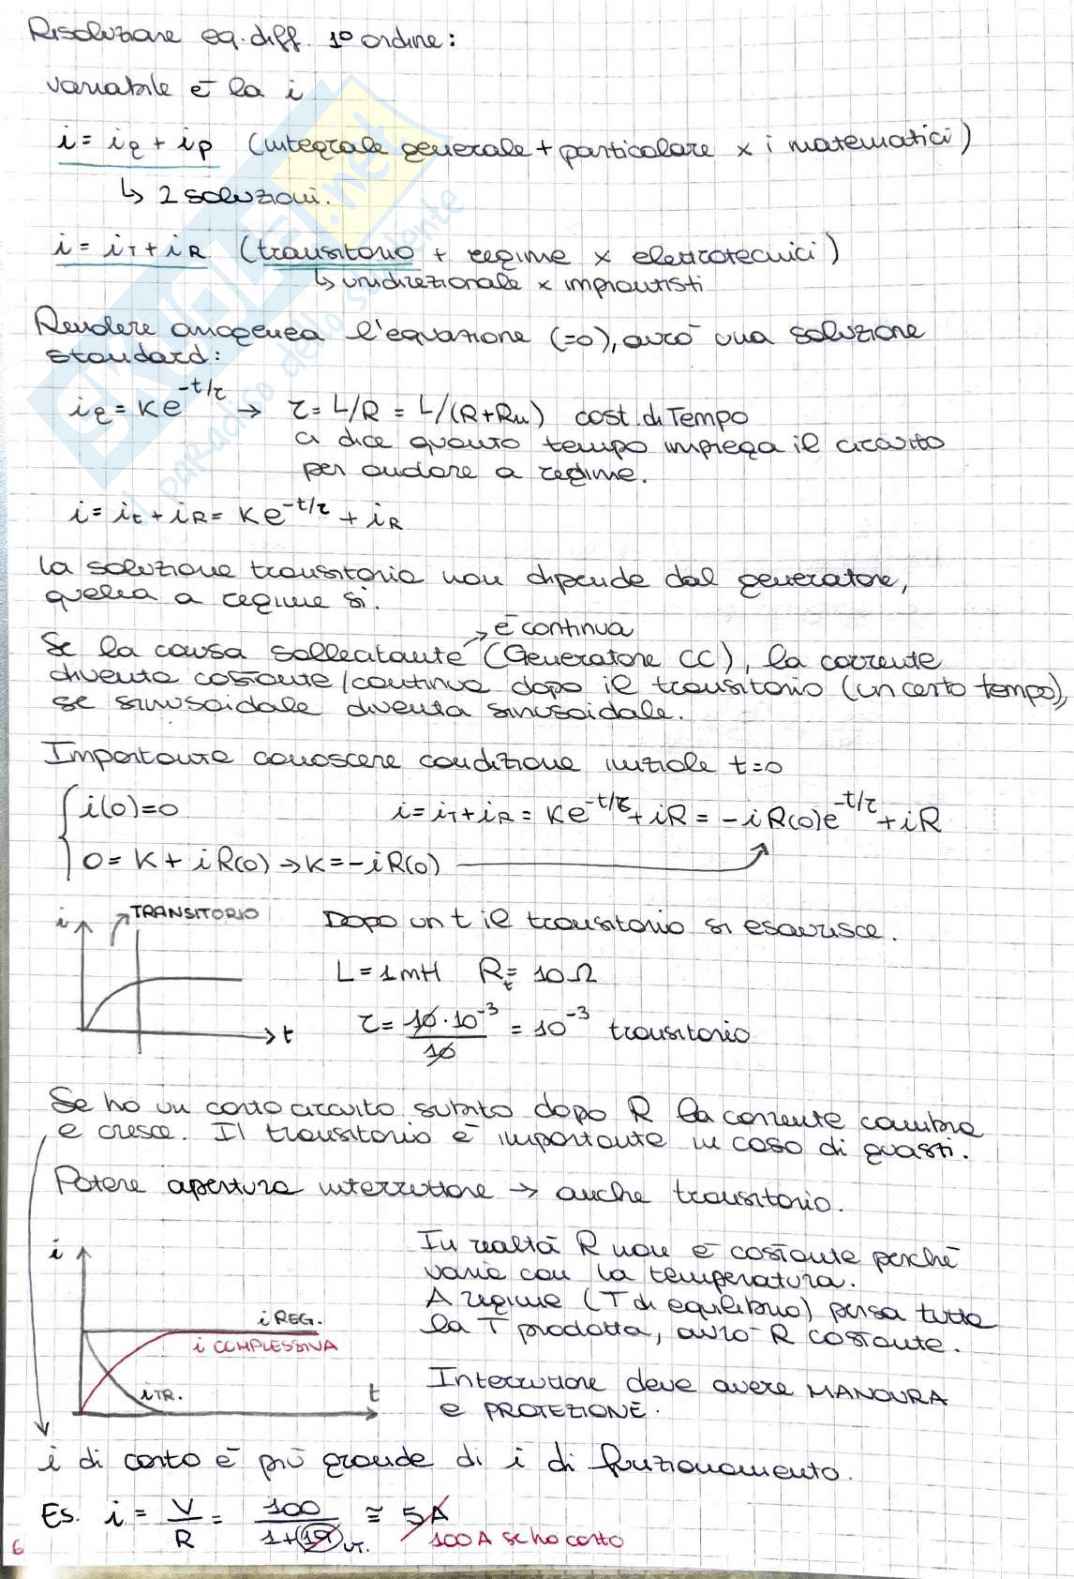 Risoluzione eq. diff. 1° ordine:
variabile è la i
i = ig + ip (integrale generale + particolare x i matematici)
↳ 2 soluzioni.
i = iT + iR (transitorio + regime x elettrotecnici)
↳ unidirezionale x impiantisti
Rendere omogenea l'equazione (=0), avrò una soluzione
standard:
ig = Ke^-t/τ → τ = L/R = L/(R+Ru) cost. di Tempo
ci dice quanto tempo impiega il circuito
per andare a regime.
i = it + iR = Ke^-t/τ + iR
la soluzione transitoria non dipende dal generatore,
quella a regime si.
è continua
Se la causa sollecitante (Generatore CC), la corrente
diventa costante/continua dopo il transitorio (un certo tempo),
se sinusoidale diventa sinusoidale.
Importante conoscere condizione iniziale t=0
i(0)=0 i = iT + iR = Ke^-t/τ + iR = -iR(0)e^-t/τ + iR
0 = K + iR(0) → K = -iR(0)
i TRANSITORIO Dopo un t il transitorio si esaurisce.
L = 1mH Rt = 10Ω
t τ = 10·10^-3 / 10 = 10^-3 transitorio
Se ho un corto circuito subito dopo R la corrente cambia
e cresce. Il transitorio è importante in caso di guasti.
Potere apertura interruttore → anche transitorio.
i In realtà R non è costante perchè
varia con la temperatura.
A regime (T di equilibrio) persa tutta
i REG. la T prodotta, avrò R costante.
i COMPLESSIVA
iTR. t Interruttore deve avere MANOVRA
e PROTEZIONE.
i di corto è più grande di i di funzionamento.
Es. i = V/R = 100/1+(19)ut. ≅ 5A
100A se ho corto
6
SKUOLA.net
il paradiso dello studente